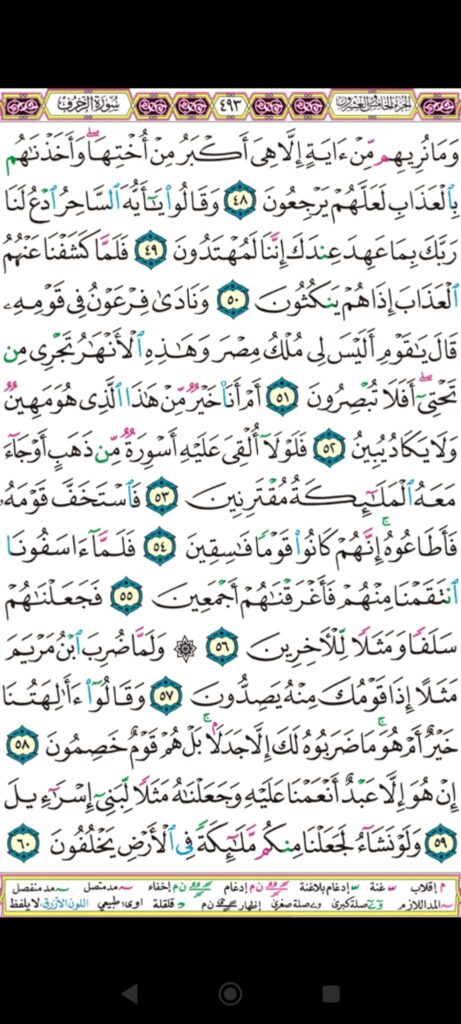 الجزء الخامس والعشرون ٤٩٣ سورة الزخرف
وَمَا نُرِيهِم مِّنْ ءَايَةٍ إِلَّا هِىَ أَكْبَرُ مِنْ أُخْتِهَا ۖ وَأَخَذْنَٰهُم
بِٱلْعَذَابِ لَعَلَّهُمْ يَرْجِعُونَ ٤٨ وَقَالُوا۟ يَٰٓأَيُّهَ ٱلسَّاحِرُ ٱدْعُ لَنَا
رَبَّكَ بِمَا عَهِدَ عِندَكَ إِنَّنَا لَمُهْتَدُونَ ٤٩ فَلَمَّا كَشَفْنَا عَنْهُمُ
ٱلْعَذَابَ إِذَا هُمْ يَنكُثُونَ ٥٠ وَنَادَىٰ فِرْعَوْنُ فِى قَوْمِهِۦ
قَالَ يَٰقَوْمِ أَلَيْسَ لِى مُلْكُ مِصْرَ وَهَٰذِهِ ٱلْأَنْهَٰرُ تَجْرِى مِن
تَحْتِىٓ ۖ أَفَلَا تُبْصِرُونَ ٥١ أَمْ أَنَا۠ خَيْرٌ مِّنْ هَٰذَا ٱلَّذِى هُوَ مَهِينٌ
وَلَا يَكَادُ يُبِينُ ٥٢ فَلَوْلَآ أُلْقِىَ عَلَيْهِ أَسْوِرَةٌ مِّن ذَهَبٍ أَوْ جَآءَ
مَعَهُ ٱلْمَلَٰٓئِكَةُ مُقْتَرِنِينَ ٥٣ فَٱسْتَخَفَّ قَوْمَهُۥ
فَأَطَاعُوهُ ۚ إِنَّهُمْ كَانُوا۟ قَوْمًا فَٰسِقِينَ ٥٤ فَلَمَّآ ءَاسَفُونَا
ٱنتَقَمْنَا مِنْهُمْ فَأَغْرَقْنَٰهُمْ أَجْمَعِينَ ٥٥ فَجَعَلْنَٰهُمْ
سَلَفًا وَمَثَلًا لِّلْءَاخِرِينَ ٥٦ ۞ وَلَمَّا ضُرِبَ ٱبْنُ مَرْيَمَ
مَثَلًا إِذَا قَوْمُكَ مِنْهُ يَصِدُّونَ ٥٧ وَقَالُوٓا۟ ءَأَٰلِهَتُنَا
خَيْرٌ أَمْ هُوَ ۚ مَا ضَرَبُوهُ لَكَ إِلَّا جَدَلًۢا ۚ بَلْ هُمْ قَوْمٌ خَصِمُونَ ٥٨
إِنْ هُوَ إِلَّا عَبْدٌ أَنْعَمْنَا عَلَيْهِ وَجَعَلْنَٰهُ مَثَلًا لِّبَنِىٓ إِسْرَٰٓءِيلَ
٥٩ وَلَوْ نَشَآءُ لَجَعَلْنَا مِنكُم مَّلَٰٓئِكَةً فِى ٱلْأَرْضِ يَخْلُفُونَ ٦٠
م إقلاب غنة إدغام بلاغنة ن م إدغام ن م إخفاء مد متصل مد منفصل
المد اللازم صلة كبرى صلة صغرى إظهار ن م قلقلة اوى: طبيعي اللون الأزرق: لا يلفظ